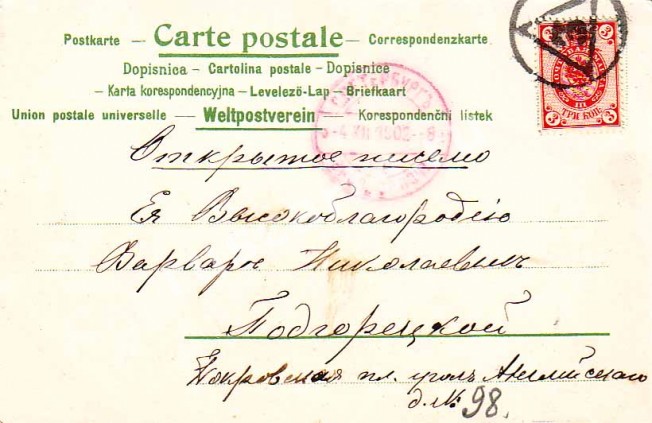 Postkarte — Carte postale — Correspondenzkarte
Dopisnica — Cartolina postale — Dopisnice
— Karta korespondencyjna — Levelező-Lap — Briefkaart
Union postale universelle — Weltpostverein — Korespondenční lístek
3 3
ТРИ КОП.
3 3
Открытое письмо
Ея Высокоблагородію
Варварѣ Николаевнѣ
Подгорецкой
Покровская пл. уголъ Англійскаго
д. № 98.